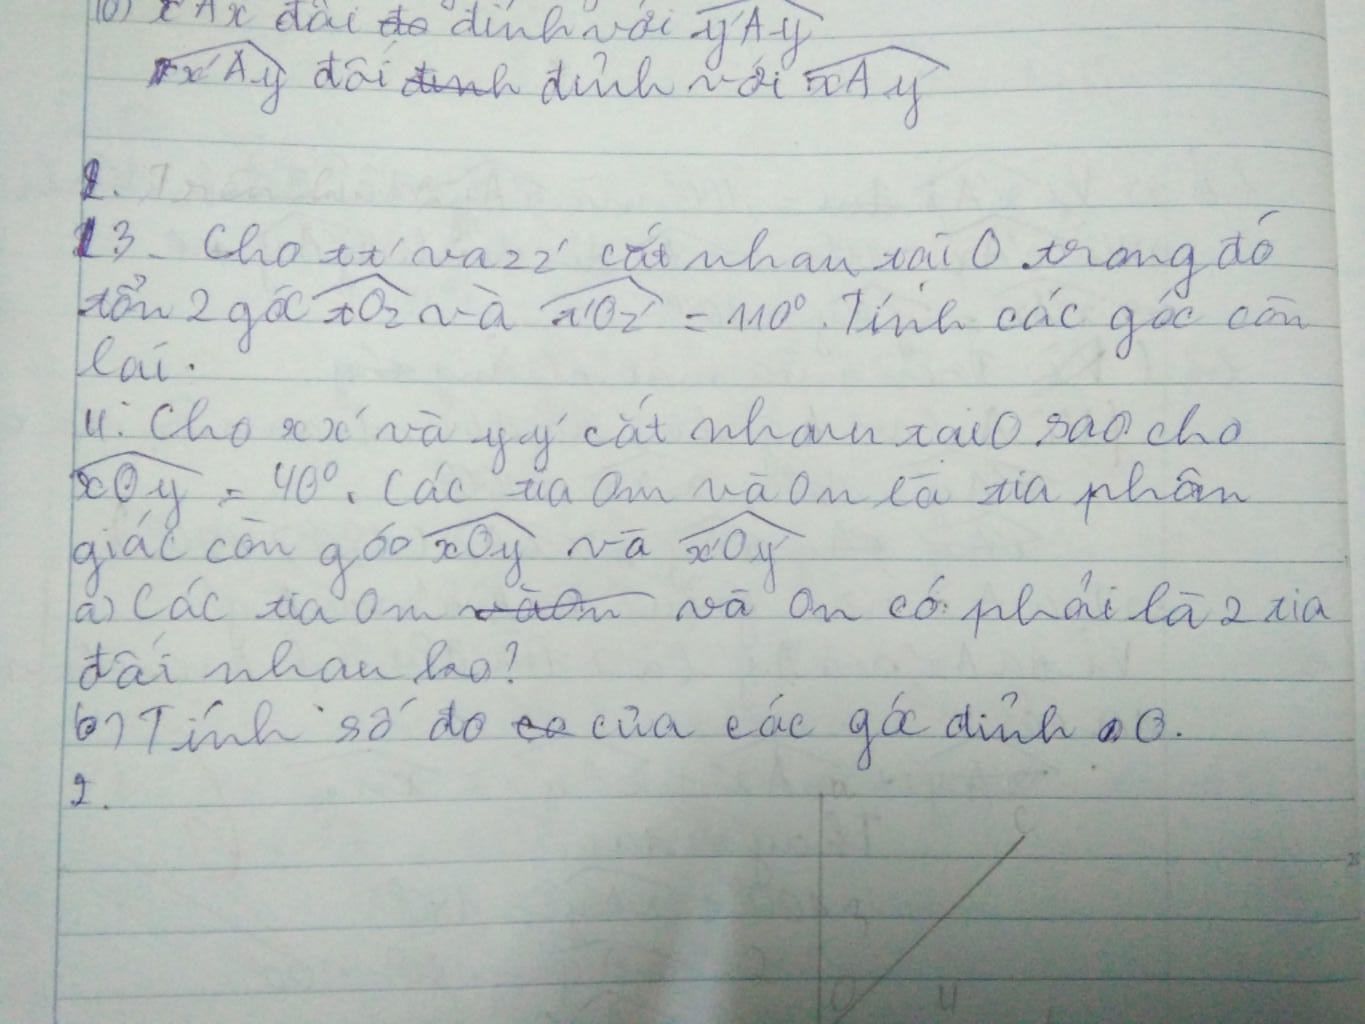 b) x'Ax đối đỉnh với y'Ay
x'Ay đối đỉnh với xAy'
2.
13. Cho xx' và zz' cắt nhau tại O trong đó
tổn 2 góc xOz và x'Oz' = 110°. Tính các góc còn
lại.
4. Cho xx' và yy' cắt nhau tại O sao cho
xOy = 40°. Các tia Om và On là tia phân
giác còn góo xOy và x'Oy'
a) Các tia Om và On có phải là 2 tia
đối nhau ko?
b) Tính số đo của các góc đỉnh O.
2.
a
C
O